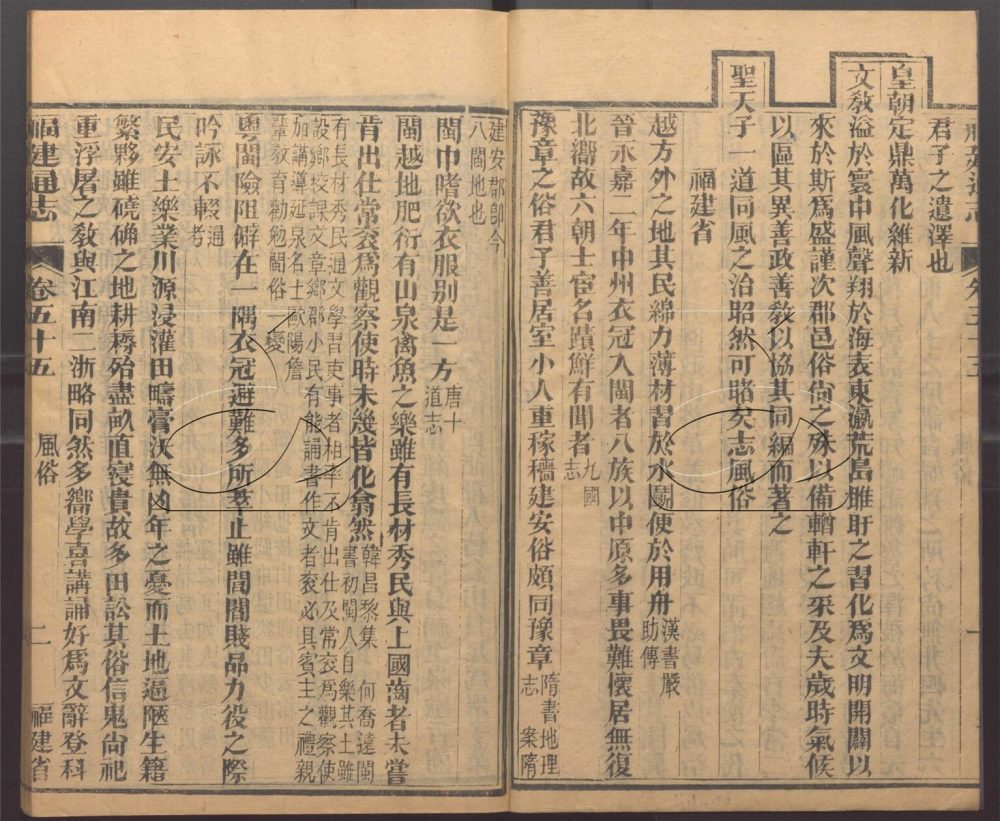 君子之遺澤也
皇朝定鼎萬化維新
文教溢於寰中風聲翔於海表東瀛荒島睢盱之習化爲文明開闢以
來於斯爲盛謹次郡邑俗尙之殊以備輶軒之采及夫歲時氣候
以區其異善政善教以協其同編而著之
聖天子一道同風之治昭然可睹矣志風俗
福建省
越方外之地其民綿力薄材習於水鬭便於用舟漢書嚴助傳
晉永嘉二年中州衣冠入閩者八族以中原多事畏難懷居無復
北嚮故六朝士宦名蹟鮮有聞者九國志
豫章之俗君子善居室小人重稼穡建安俗頗同豫章隋書地理志 案隋
建安郡卽今八閩地也
閩中嗜欲衣服別是一方唐十道志
閩越地肥衍有山泉禽魚之樂雖有長材秀民與上國齒者未嘗
肯出仕常袞爲觀察使時未幾皆化翕然韓昌黎集 何喬遠閩書初閩人自樂其土雖
有長材秀民通文學習吏事者相率不肯出仕及常袞爲觀察使設鄕校課文章鄕郡小民有能誦書作文者袞必具賓主之禮親
加講導延泉名士歐陽詹輩敎育勸勉閩俗一變
粵閩險阻僻在一隅衣冠避難多所萃止雖閭閻賤品力役之際
吟詠不輟通考
民安土樂業川源浸灌田疇膏沃無凶年之憂而土地逼陿生籍
繁夥雖磽确之地耕耨殆盡畝直寖貴故多田訟其俗信鬼尙祀
重浮屠之敎與江南二浙略同然多嚮學喜講誦好爲文辭登科
福建通志
卷五十五
風俗
二
福建省